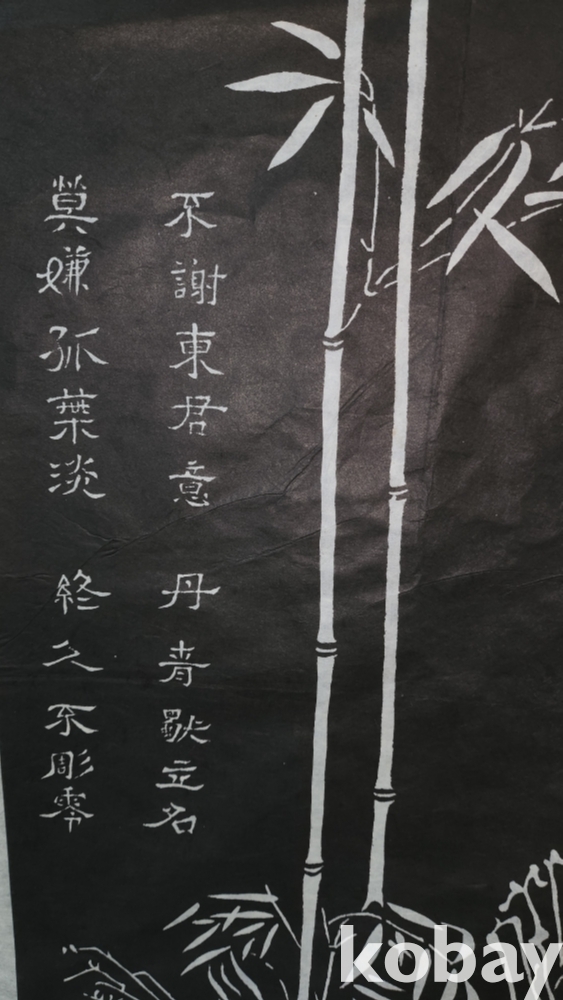 不謝東君意 丹青獨立名
莫嫌孤葉淡 終久不彫零
kobay